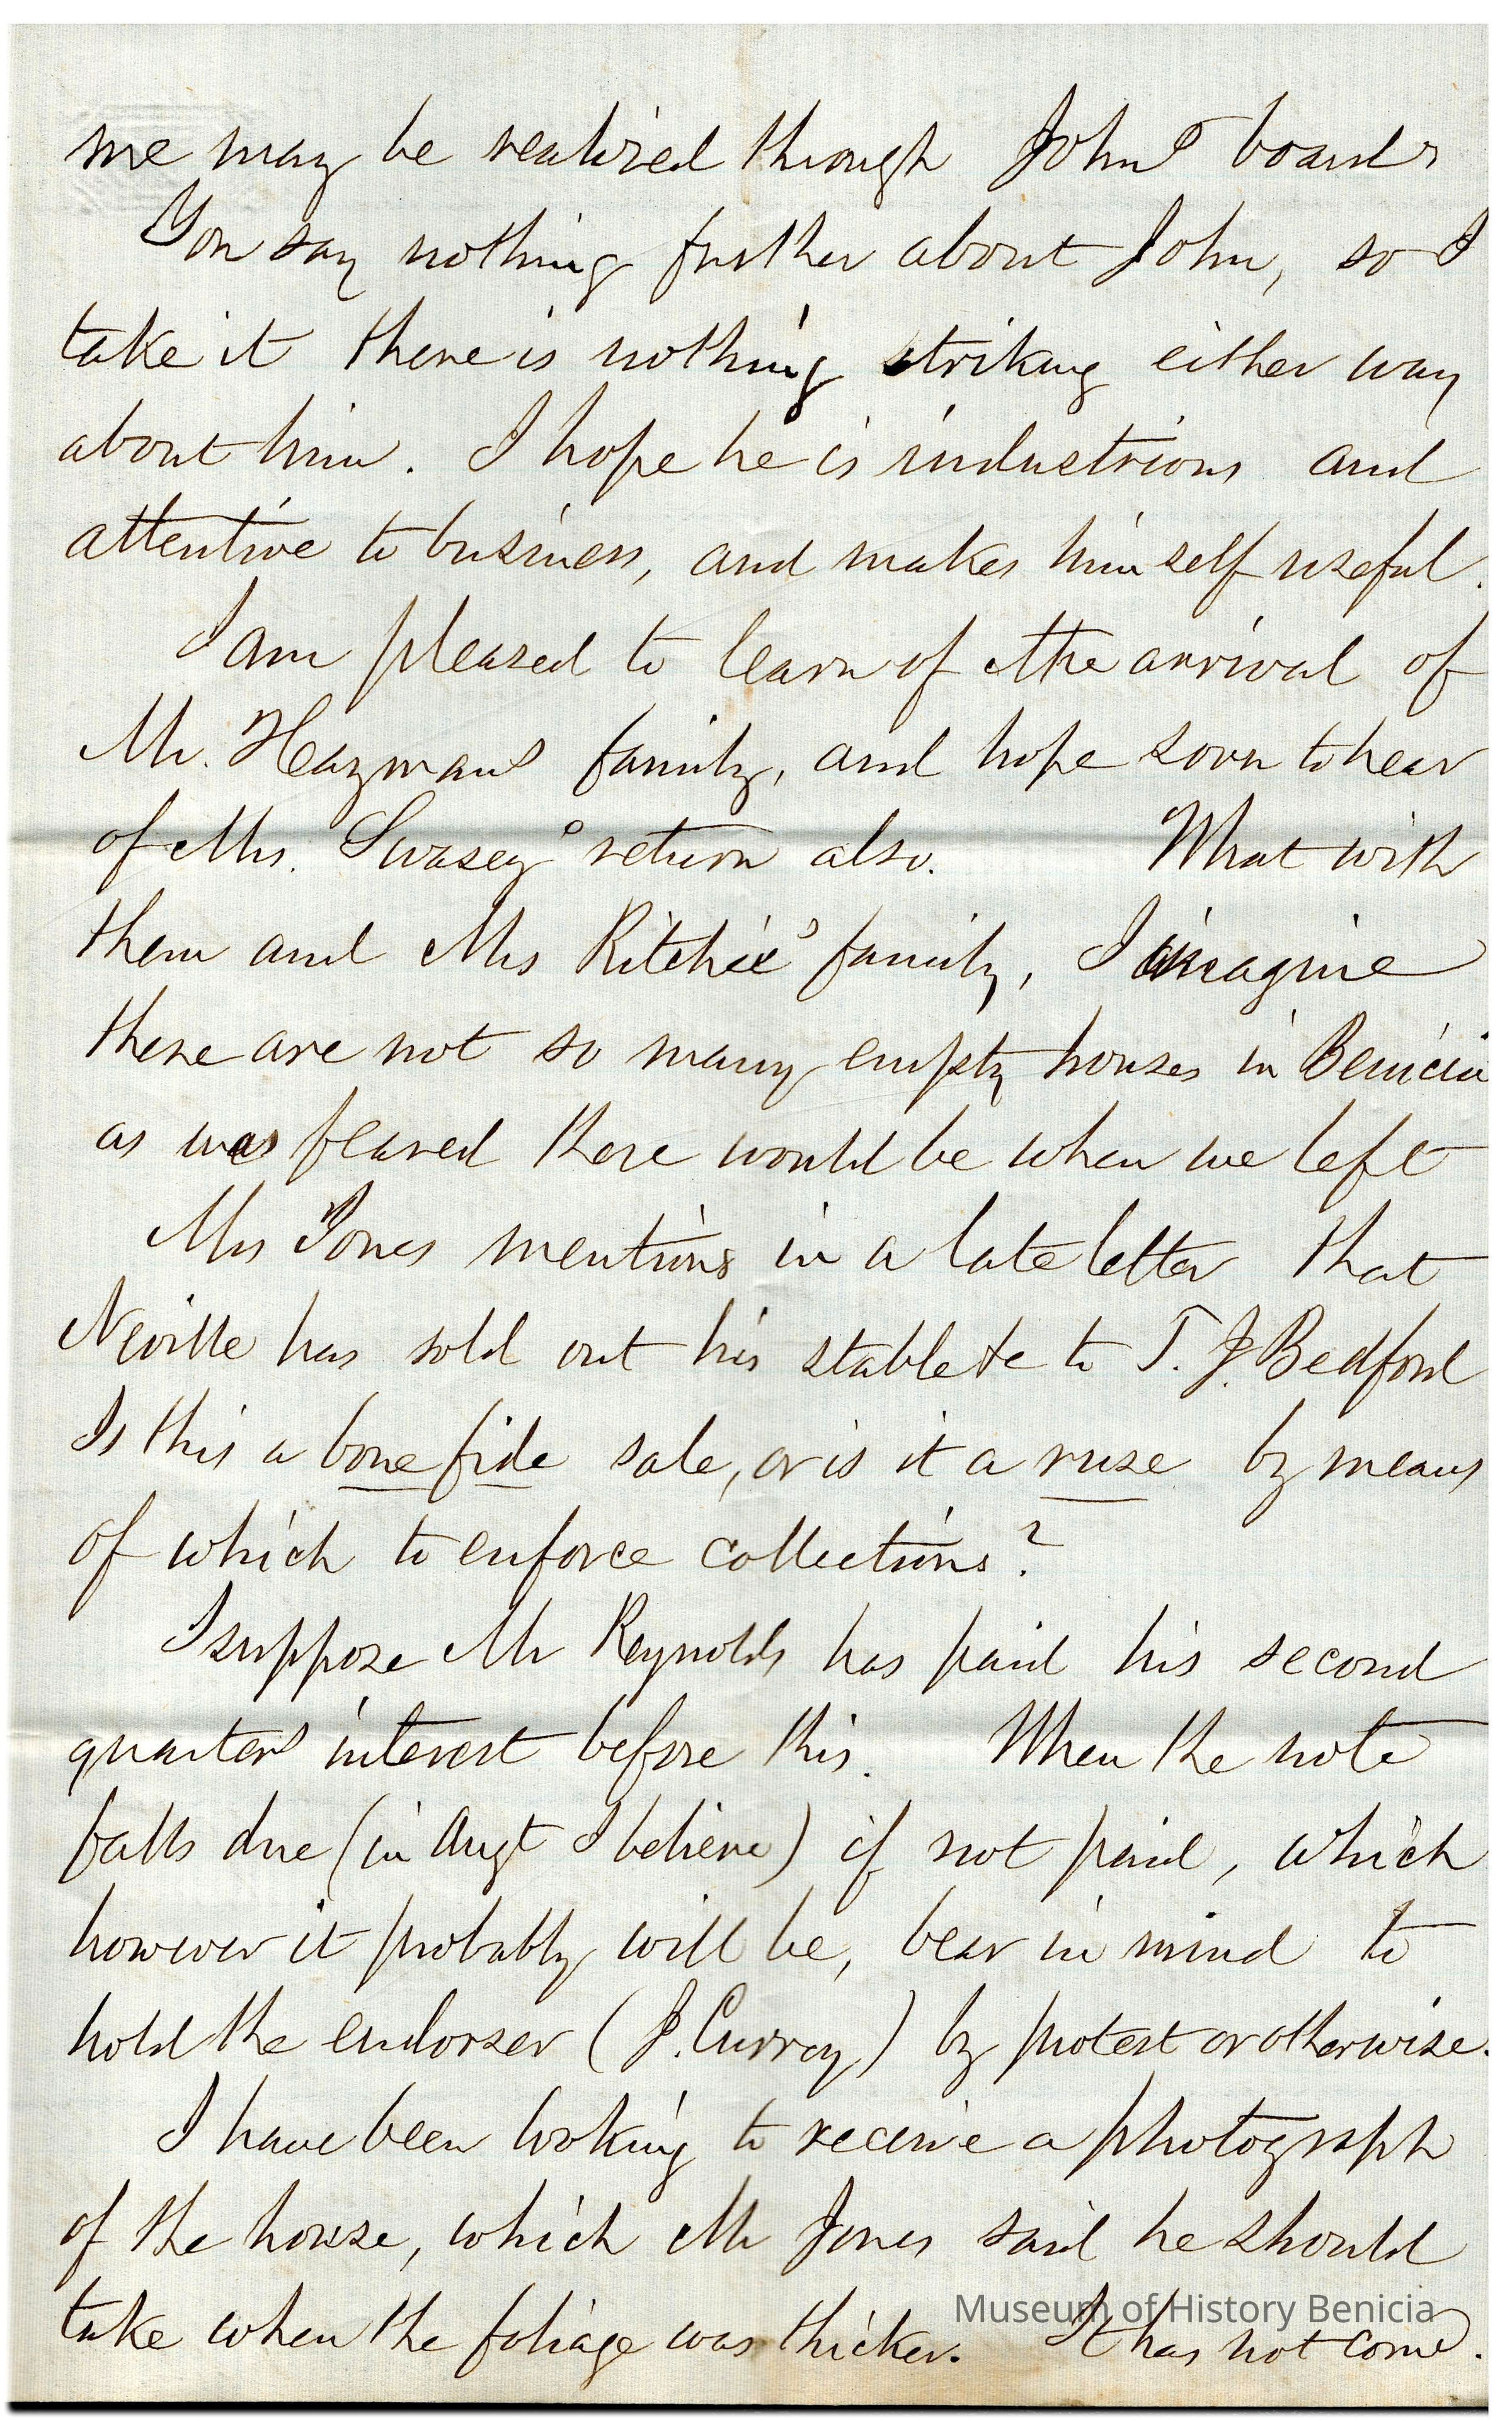 me may be realized through John's board
You say nothing further about John, so I
take it there is nothing striking either way
about him. I hope he is industrious and
attentive to business, and makes himself useful.
I am pleased to learn of the arrival of
Mr. Hayman's family, and hope soon to hear
of Mrs. Swasey's return also. What with
them and Mrs Ritchie's family, I imagine
there are not so many empty houses in Benicia
as was feared there would be when we left
Mrs Jones mentions in a late letter that
Neville has sold out his stable &c to T. J. Bedford
Is this a bone fide sale, or is it a ruse by means
of which to enforce collections?
I suppose Mr Reynolds has paid his second
quarters interest before this. When the note
falls due (in Augt I believe) if not paid, which
however it probably will be, bear in mind to
hold the endorser (J. Curray) by protest or otherwise.
I have been looking to receive a photograph
of the house, which Mr Jones said he should
take when the foliage was thicker. It has not come.
Museum of History Benicia